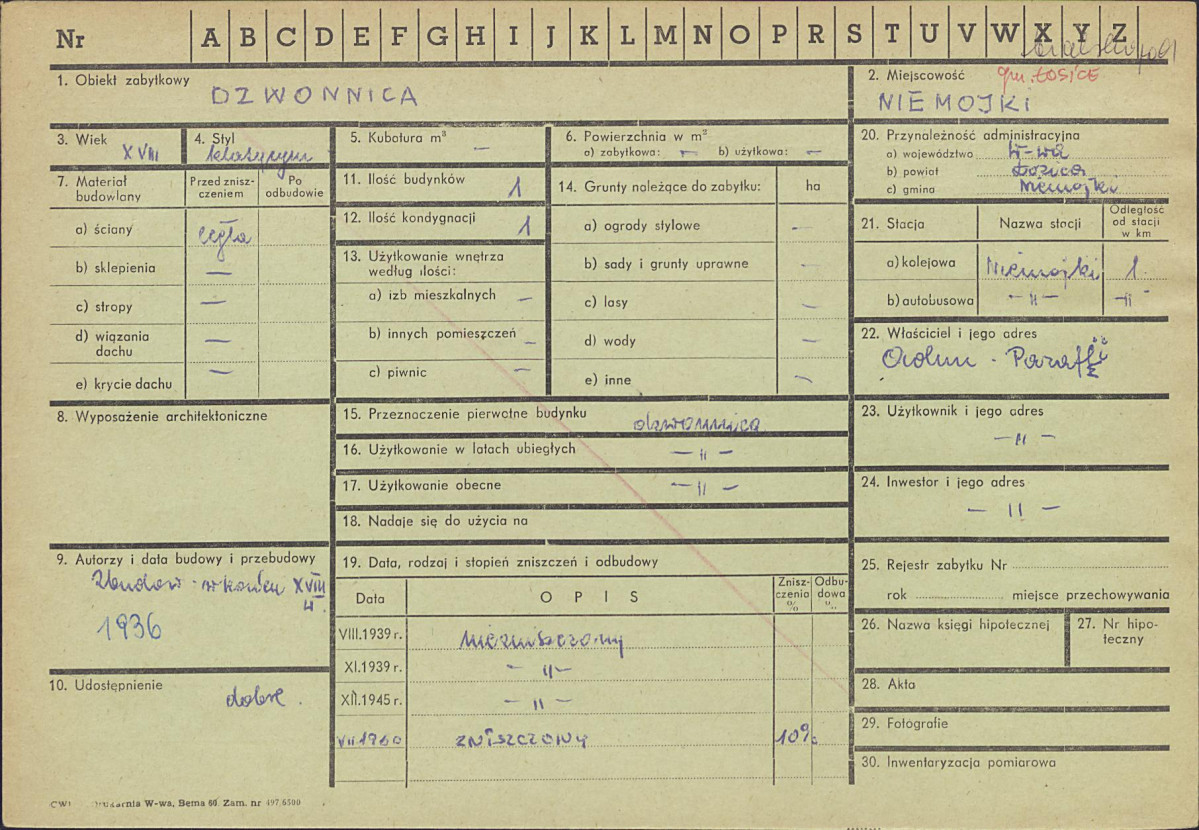 Nr A B C D E F G H I J K L M N O P R S T U V W X Y Z
1. Obiekt zabytkowy
DZWONNICA
2. Miejscowość gm. ŁOSICE
NIEMOJKI
3. Wiek
XVIII
4. Styl
klasycyzm
5. Kubatura m³ —
6. Powierzchnia w m²
a) zabytkowa: — b) użytkowa: —
7. Materiał budowlany
Przed znisz-
czeniem
Po
odbudowie
a) ściany cegła
b) sklepienia —
c) stropy —
d) wiązania
dachu —
e) krycie dachu —
8. Wyposażenie architektoniczne
9. Autorzy i data budowy i przebudowy
Zbudow. w końcu XVIII
w.
1936
10. Udostępnienie
dobre.
11. Ilość budynków 1
12. Ilość kondygnacji 1
13. Użytkowanie wnętrza
według ilości:
a) izb mieszkalnych —
b) innych pomieszczeń —
c) piwnic —
14. Grunty należące do zabytku: ha
a) ogrody stylowe —
b) sady i grunty uprawne —
c) lasy —
d) wody —
e) inne —
15. Przeznaczenie pierwotne budynku dzwonnica
16. Użytkowanie w latach ubiegłych — || —
17. Użytkowanie obecne — || —
18. Nadaje się do użycia na
19. Data, rodzaj i stopień zniszczeń i odbudowy
Data OPIS
Znisz-
czenia
%
Odbu-
dowa
VIII.1939 r. niezniszczony
XI.1939 r. — || —
XII.1945 r. — || —
VII 1960 ZNISZCZONY 10%
20. Przynależność administracyjna
a) województwo W-wa
b) powiat Łosice
c) gmina Niemojki
21. Stacja Nazwa stacji
Odległość
od stacji
w km
a) kolejowa Niemojki 1
b) autobusowa — || — — || —
22. Właściciel i jego adres
23. Użytkownik i jego adres
— || —
24. Inwestor i jego adres
— || —
25. Rejestr zabytku Nr
rok miejsce przechowywania
26. Nazwa księgi hipotecznej
27. Nr hipo-
teczny
28. Akta
29. Fotografie
30. Inwentaryzacja pomiarowa
Drukarnia W-wa, Bema 60. Zam. nr 497 6500